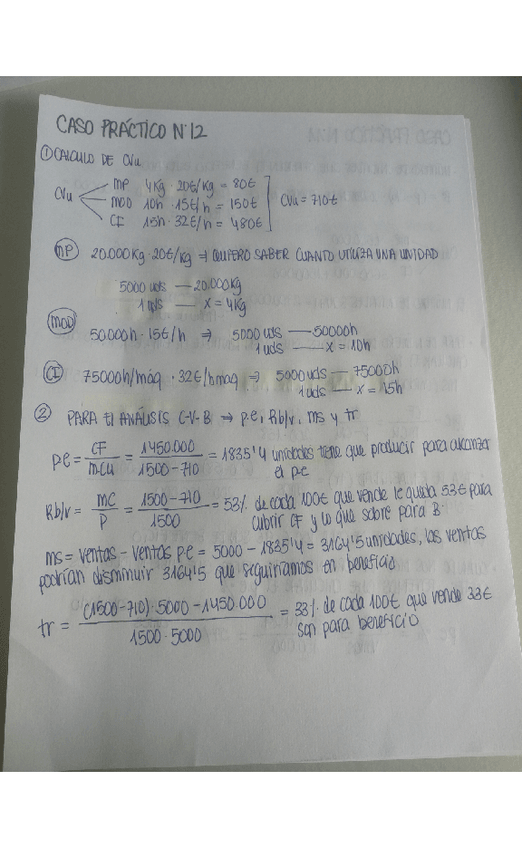 CASO PRÁCTICO Nº12
① CALCULO DE CVu
CVu
MP 4Kg · 20€/Kg = 80€
MOD 10h · 15€/h = 150€
CI 15h · 32€/h = 480€
CVu = 710€
MP 20.000Kg · 20€/Kg → QUIERO SABER CUANTO UTILIZA UNA UNIDAD
5000 uds — 20.000Kg
1 uds — x = 4Kg
MOD 50000h · 15€/h ⇒ 5000 uds — 50000h
1 uds — x = 10h
CI 75000h/máq · 32€/hmaq ⇒ 5000 uds — 75000h
1 uds — x = 15h
② PARA EL ANÁLISIS C-V-B ⇒ pe, Rb/v, ms y tr
pe = CF / mcu = 1450.000 / 1500-710 = 1835'4 unidades tiene que producir para alcanzar
el pe
Rb/v = MC / P = 1500-710 / 1500 = 53% de cada 100€ que vende le queda 53€ para
cubrir CF y lo que sobre para B
ms = ventas - ventas pe = 5000 - 1835'4 = 3164'5 unidades, las ventas
podrían disminuir 3164'5 que seguiríamos en beneficio
tr = (1500-710) · 5000 - 1450.000 / 1500 · 5000 = 33% de cada 100€ que vende 33€
son para beneficio